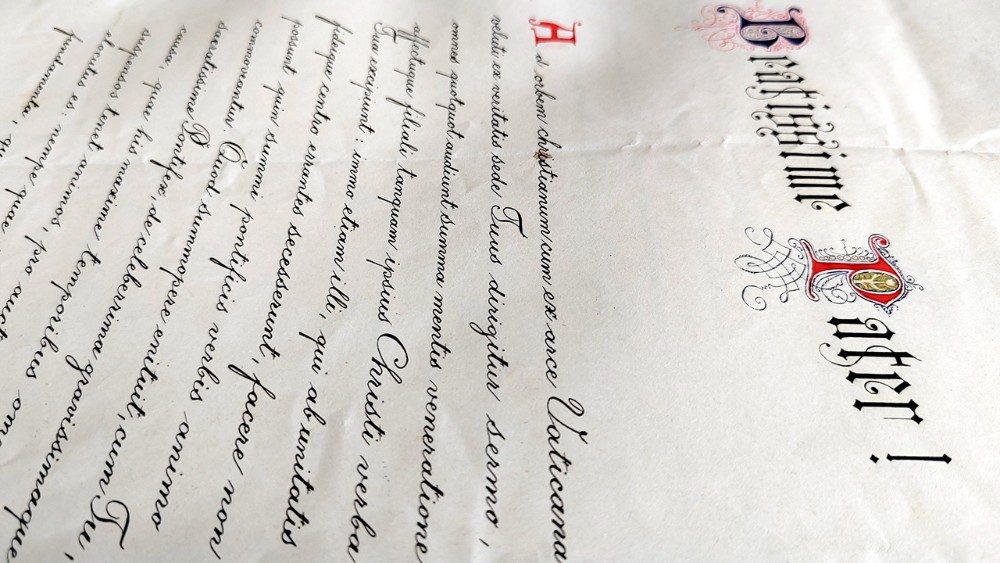 Beatissime Pater!
Ad orbem christianum cum ex arce Vaticana
veluti ex veritatis sede Tuus dirigitur sermo,
omnes quotquot audiunt summa mentis veneratione
affectuque filiali tanquam ipsius Christi verba
Tua excipiunt: immo etiam illi, qui ab unitatis
fideque centro errantes secesserunt, facere non
possunt quin summi pontificis verbis animo
commoveantur. Quod summopere enituit, cum Tu,
sacratissime Pontifex, de celeberima gravissimaque
causa, quae his maxime temporibus
suspensos tenet animos, pro
elocutus es: nempe quae
fundamenta,